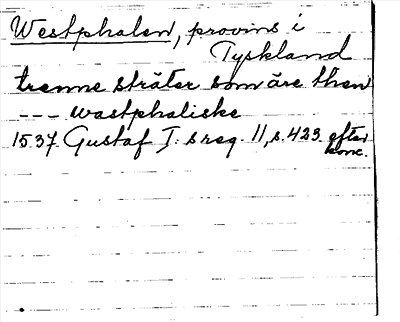 Westphalen, provins i
Tyskland
trenne sträter som äre then
--- wastphaliske
1537 Gustaf I:s reg. 11, s. 423. efter
konc.